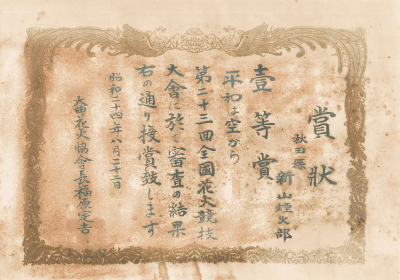 賞状
秋田県
新山煙火部
壹等賞
平和は空から
第二十三回全国花火競技
大會に於て審査の結果
右の通り授賞致します
昭和二十四年八月二十二日
大曲花火協會長榊原定吉